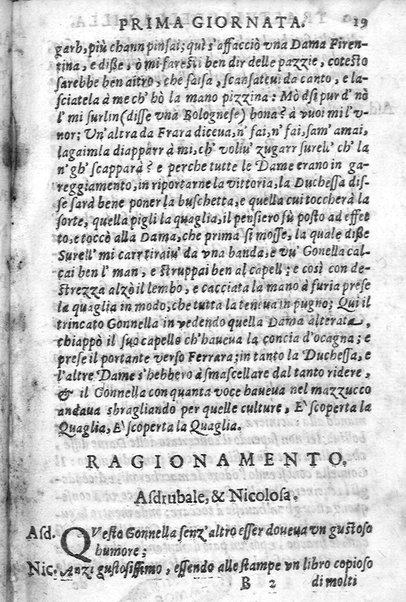 PRIMA GIORNATA. 19
garb, più chann pinsai; qui s'affacciò vna Dama Firen-
tina, e disse, ò mi faresti ben dir delle pazzie, cotesto
sarebbe ben altro, che salsa, scansateui da canto, e la-
sciatela à me ch' hò la mano pizzina: Mò dsì pur d' nò
l' mi surlin (disse vna Bolognese) bona? à vuoi mi l' v-
nor; Un' altra da Frara diceua, n' fai, n' fai, sam' amai,
lagaimla diapparr à mi, ch' voliu' zugarr surel' ch' la
n' gh' scapparà? e perche tutte le Dame erano in ga-
reggiamento, in riportarne la vittoria, la Duchessa dis-
se sarà bene poner la buschetta, e quella cui toccherà la
sorte, quella pigli la quaglia, il pensiero fù posto ad effet
to, e toccò alla Dama, che prima si mosse, la quale diße
Surell' mi carr tiraiu' da vna banda, e vu' Gonella cal-
çai ben l' man, e struppai ben al capell; e così con de-
strezza alzò il lembo, e cacciata la mano à furia prese
la quaglia in modo, che tutta la teneua in pugno; Qui il
trincato Gonnella in vedendo quella Dama alterata,
chiappò il suo capello ch'haueua la concia d'ocagna; e
prese il portante verso Ferrara; in tanto la Duchessa, e
l'altre Dame s'hebbero à smascellare dal tanto ridere,
& il Gonnella con quanta voce haueua nel mazzucco
andaua sbragliando per quelle culture, E' scoperta la
Quaglia, E' scoperta la Quaglia.
RAGIONAMENTO.
Asdrubale, & Nicolosa.
Asd. QVesto Gonnella senz' altro esser doueua vn gustoso
humore;
Nic. Anzi gustosissimo, essendo alle stampe vn libro copioso
B 2 di molti